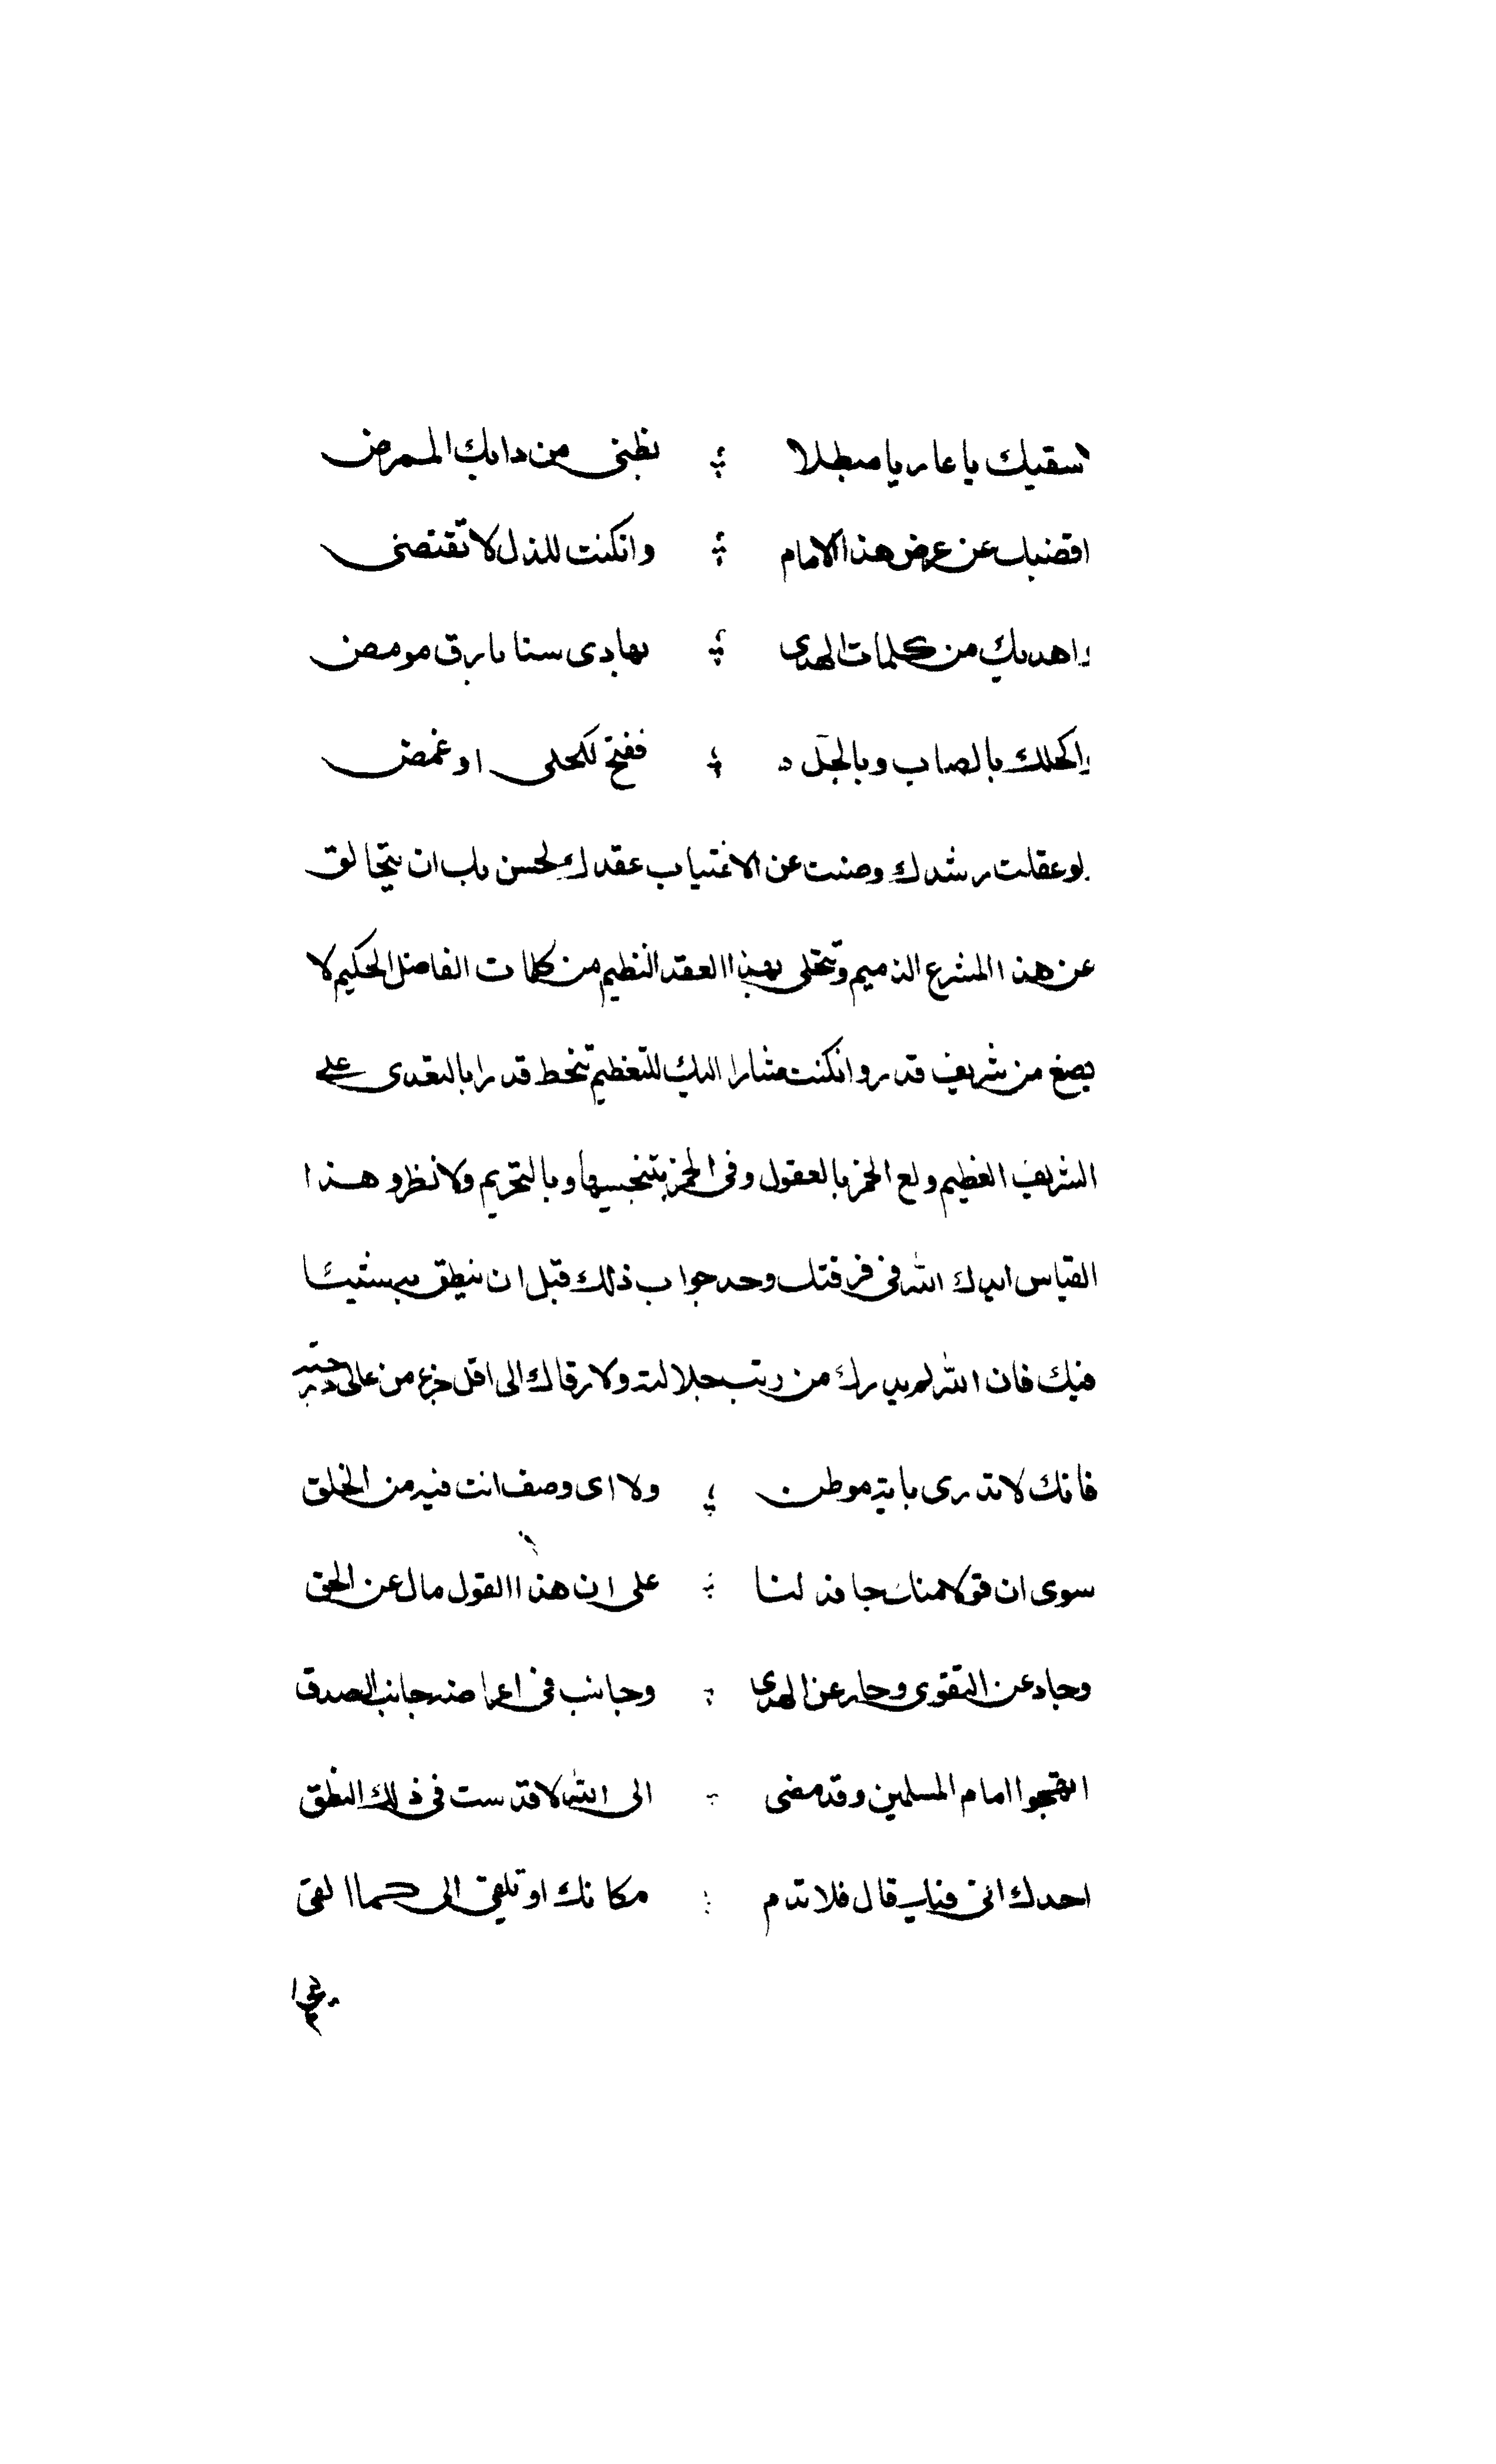 اسقيك يا عاريا مبطلا ؛ بطبى من دايك الممرض
اقضيك عن عرض هذا الامام ؛ وان كنت للذل لا تقتضى
واهديك من كلمات الهدى ؛ بهادى سنا بارق مومض
واكحلك بالصاب وبالجلاد ؛ ففتح لكحلى او غمض
لو عقلت رشدك وصنت عن الاغتياب عقدك لحسن بك ان تتجالق
عن هذا المشرع الذميم وتتحلى بهذا العقد النظيم من كلمات الفاضل الحكيم لا
يضع من شريف قدر وان كنت مشارا اليك للتعظيم تنحط قدرا بالتعدى على
الشريف العظيم ولع الخمر بالعقول وفى الخمر بتنجيسها وبالتحريم ولا نظر وهذا
القياس ايدك الله فى فرقتك وحد جواب ذلك قبل ان ينطق بسيئا
فيك فان الله لم يدرك من رتب جلالته ولا رقاك الى اقل جزء من عالى درجته
فانك لا تدرى باية موطن ؛ ولا اى وصف انت فيه من الخلق
سوى ان قولا منك جافذ لنا ؛ على ان هذا القول مال عن الحق
وحاد عن التقوى وحار عن الهدى ؛ وجانب فى اعراضه جانب الصدق
اتهجوا امام المسلمين وقد مضى ؛ الى الله لا قدست فى ذلك النطق
احدك انى فيك قال فلا تدم ؛ مكانك او تلقى الى كما القى